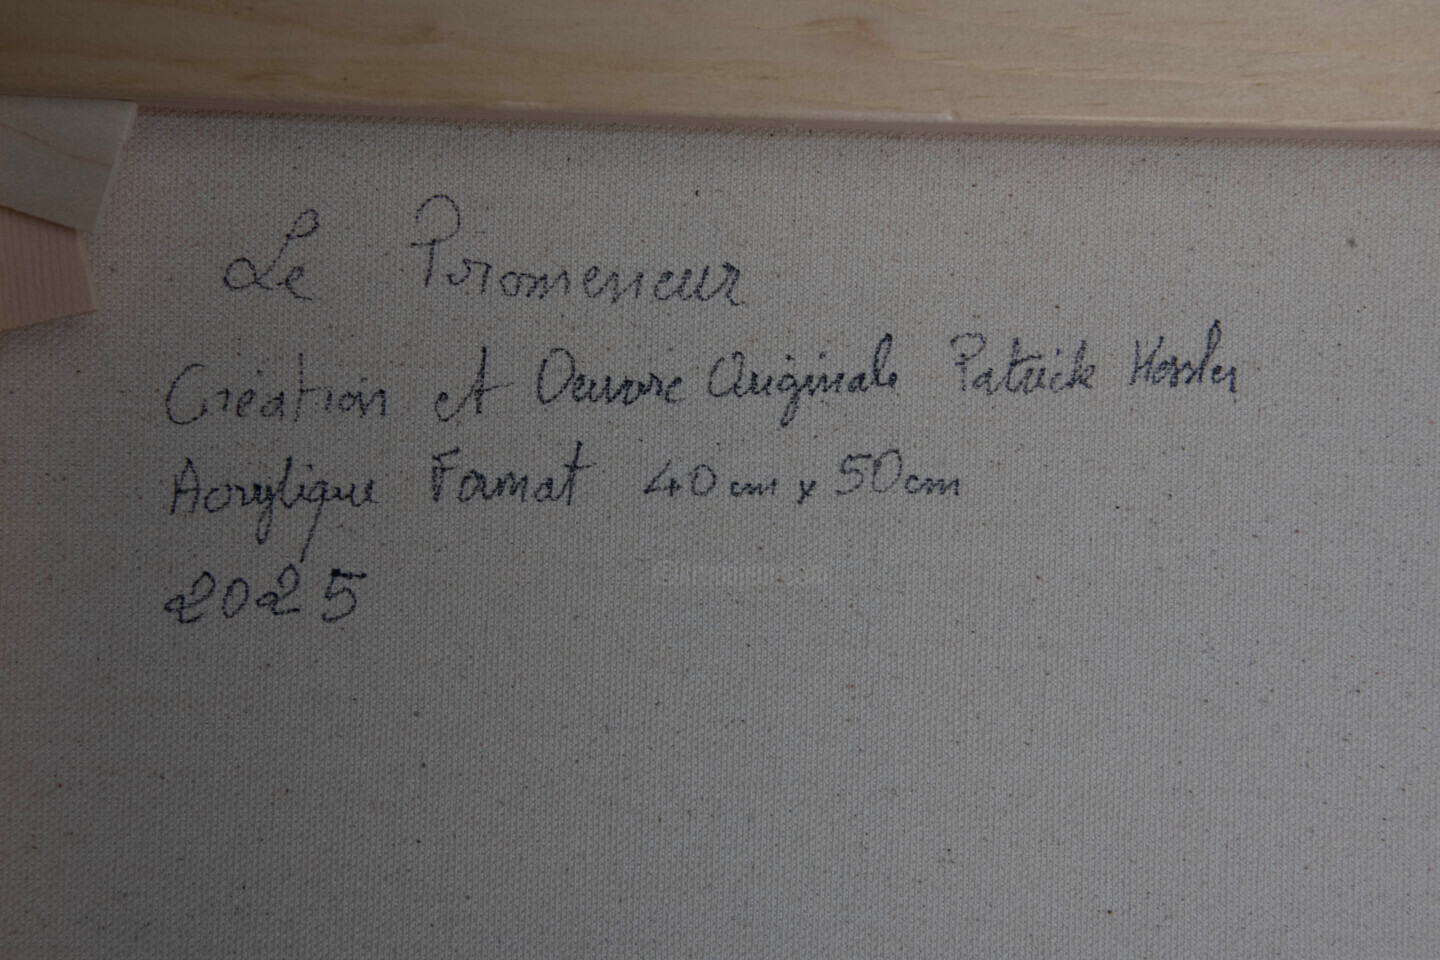 Le Promeneur
Création et Oeuvre Originale Patrick Hessler
Acrylique Format 40cm x 50cm
2025